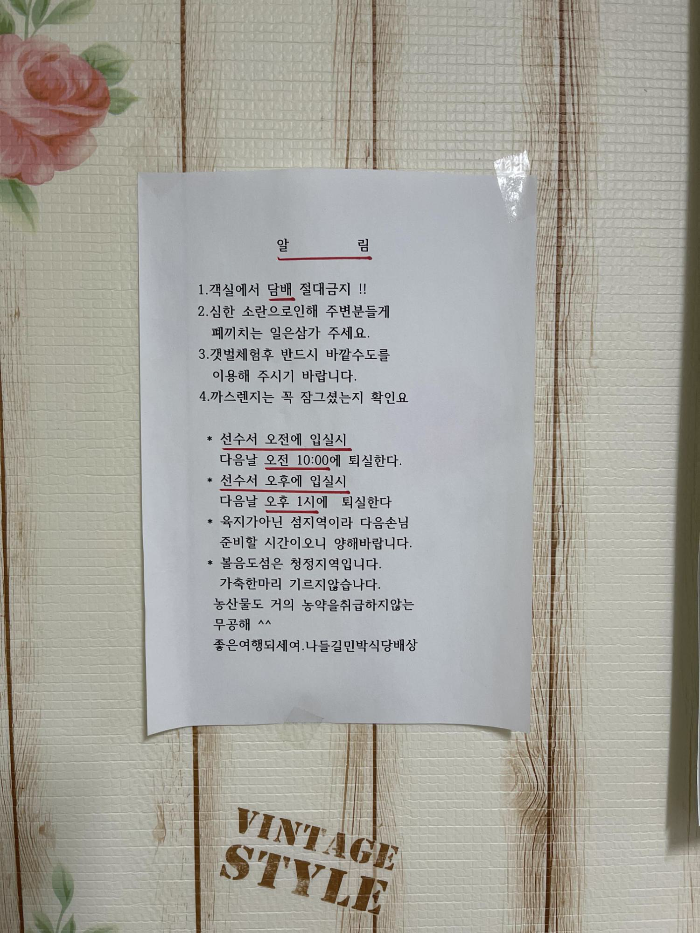 알 림
1.객실에서 담배 절대금지 !!
2.심한 소란으로인해 주변분들게
폐끼치는 일은삼가 주세요.
3.갯벌체험후 반드시 바깥수도를
이용해 주시기 바랍니다.
4.까스렌지는 꼭 잠그셨는지 확인요
* 선수서 오전에 입실시
다음날 오전 10:00에 퇴실한다.
* 선수서 오후에 입실시
다음날 오후 1시에 퇴실한다
* 육지가아닌 섬지역이라 다음손님
준비할 시간이오니 양해바랍니다.
* 볼음도섬은 청정지역입니다.
가축한마리 기르지않습나다.
농산물도 거의 농약을취급하지않는
무공해 ^^
좋은여행되세여.나들길민박식당배상
VINTAGE
STYLE